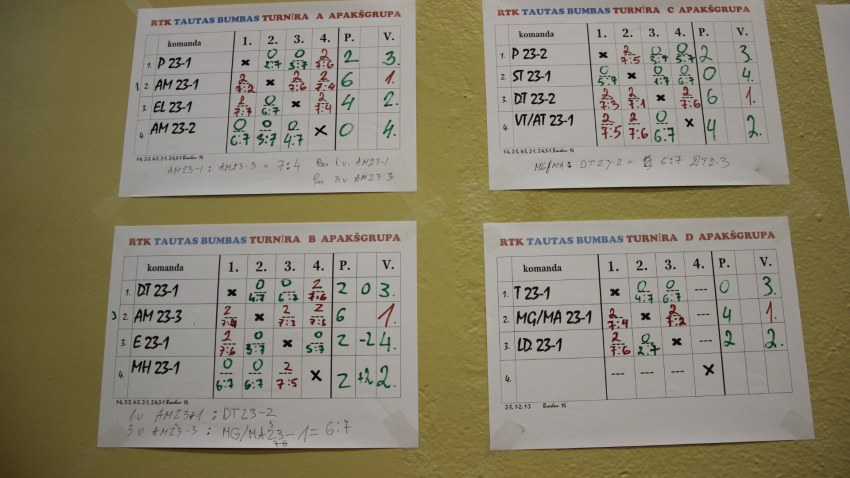 RTK TAUTAS BUMBAS TURNĪRA A APAKŠGRUPA
komanda 1. 2. 3. 4. P. V.
1. P 23-1 × 0 2:7 0 5:7 2 7:6 2 3.
1 2. AM 23-1 2 7:2 × 2 7:6 2 7:4 6 1.
3. EL 23-1 2 7:5 0 6:7 × 2 7:4 4 2.
4. AM 23-2 0 6:7 0 4:7 0 4:7 × 0 4.
AM23-1 : AM23-3 = 7:4
1 v. AM23-1
3 v AM23-3
RTK TAUTAS BUMBAS TURNĪRA C APAKŠGRUPA
komanda 1. 2. 3. 4. P. V.
1. P 23-2 × 2 7:5 0 3:7 0 5:7 2 3.
2. ST 23-1 0 5:7 × 0 1:7 0 6:7 0 4.
3. DT 23-2 2 7:3 2 7:1 × 2 7:6 6 1.
4. VT/AT 23-1 2 7:5 2 7:6 0 6:7 × 4 2.
MG/MA : DT23-2 = 6:7
RTK TAUTAS BUMBAS TURNĪRA B APAKŠGRUPA
komanda 1. 2. 3. 4. P. V.
1. DT 23-1 × 0 4:7 0 6:7 2 7:6 2 0 3.
3 2. AM 23-3 2 7:4 × 2 7:3 2 6 1.
3. E 23-1 2 7:6 0 3:7 × 0 5:7 2 -2 4.
4. MH 23-1 0 6:7 0 6:7 2 7:5 × 2 +2 2.
1 v AM23-1 : DT23-2
3 v AM23-3 : MG/MA23-1 = 6:7
RTK TAUTAS BUMBAS TURNĪRA D APAKŠGRUPA
komanda 1. 2. 3. 4. P. V.
1. T 23-1 × 0 4:7 0 6:7 --- 0 3.
2. MG/MA 23-1 2 7:4 × 2 7:2 --- 4 1.
3. LD 23-1 2 7:6 0 2:7 × --- 2 2.
4. --- --- --- ×
2-3, 1-2, 1-3